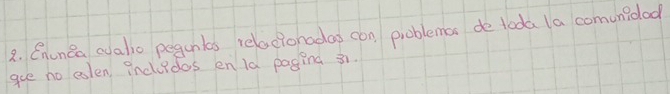 2. Enuncia cuatro peguntas relacionadas con problemas de toda la comunidad
que no esten incluidos en la pagina 31.